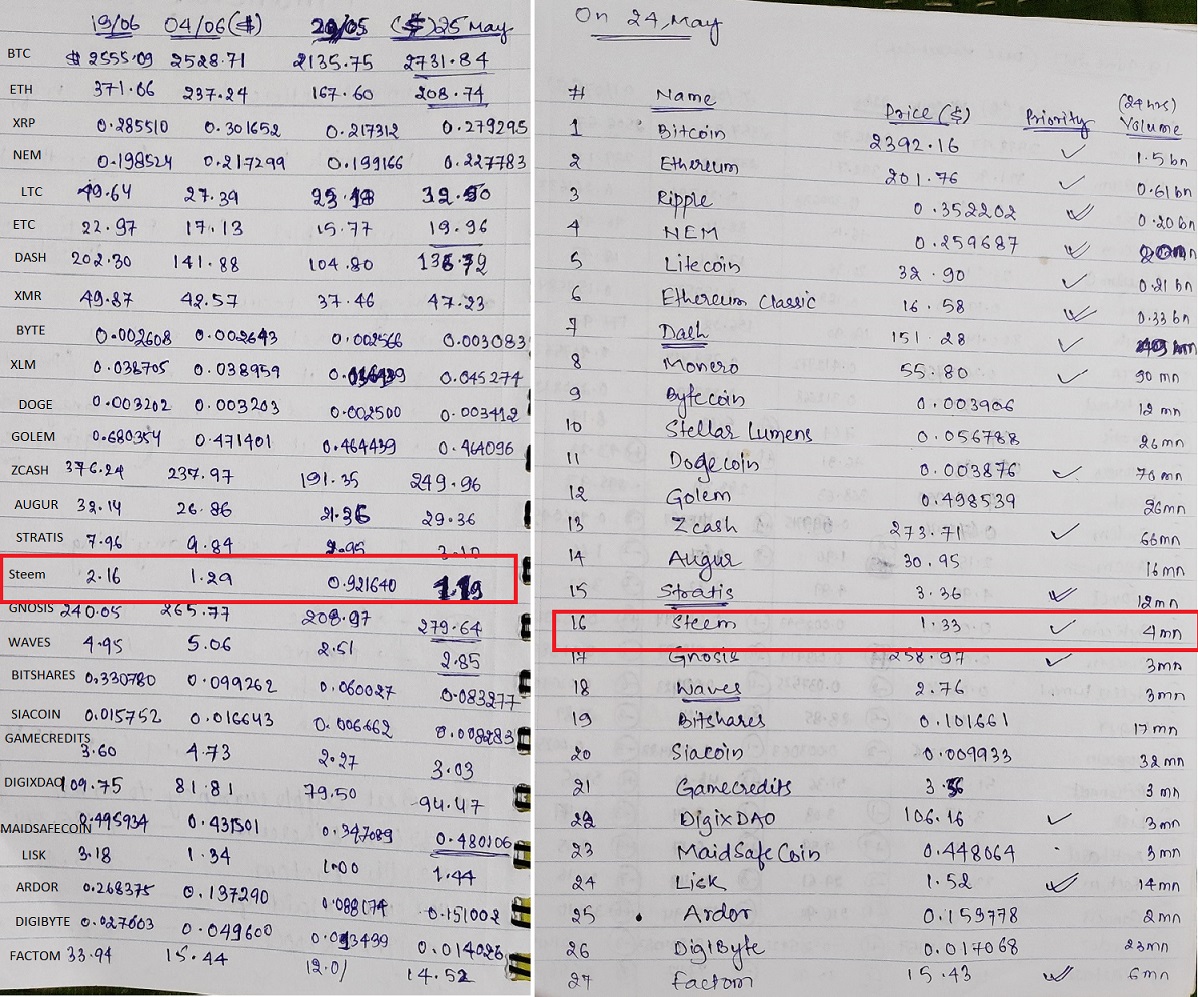 19/06 04/06($) 29/05 ($)25 May
BTC $ 2555.09 2528.71 2135.75 2731.84
ETH 371.66 237.24 167.60 208.74
XRP 0.285510 0.301652 0.217312 0.279295
NEM 0.198524 0.217299 0.199166 0.227783
LTC 49.64 27.39 32.50
ETC 22.97 17.13 15.77 19.96
DASH 202.30 141.88 104.80
XMR 49.87 42.57 37.46 47.23
BYTE 0.002608 0.002643 0.002566 0.003083
XLM 0.038705 0.038959 0.045274
DOGE 0.003202 0.003203 0.002500 0.003412
GOLEM 0.680354 0.471401 0.464439 0.464096
ZCASH 376.24 237.97 191.35 249.96
AUGUR 32.14 26.86 21.36 29.36
STRATIS 7.96 9.84 2.95 3.10
Steem 2.16 1.29 0.921640 1.19
GNOSIS 240.05 265.77 208.97 279.64
WAVES 4.95 5.06 2.51 2.85
BITSHARES 0.330780 0.099262 0.060027 0.083277
SIACOIN 0.015752 0.016643 0.006662 0.008283
GAMECREDITS
3.60 4.73 2.27 3.03
DIGIXDAO 109.75 81.81 79.50 94.47
MAIDSAFECOIN 0.495934 0.431501 0.347089 0.480106
LISK 3.18 1.34 1.00 1.44
ARDOR 0.268375 0.137290 0.088074 0.151002
DIGIBYTE 0.027603 0.049600 0.014026
FACTOM 33.94 15.44 12.01 14.52
On 24, May
# Name Price ($) Priority (24 hrs) Volume
1 Bitcoin 2392.16 ✓ 1.5 bn
2 Ethereum 201.76 ✓ 0.61 bn
3 Ripple 0.352202 ✓ 0.20 bn
4 NEM 0.259687 ✓
5 Litecoin 32.90 ✓ 0.21 bn
6 Ethereum Classic 16.58 ✓ 0.33 bn
7 Dash 151.28 ✓
8 Monero 55.80 ✓ 90 mn
9 Bytecoin 0.003906 12 mn
10 Stellar Lumens 0.056788 26 mn
11 Dogecoin 0.003876 ✓ 70 mn
12 Golem 0.498539 26mn
13 Zcash 273.71 ✓ 66mn
14 Augur 30.95 16 mn
15 Stratis 3.36 ✓ 12mn
16 Steem 1.33 ✓ 4mn
17 Gnosis 258.97 ✓ 3mn
18 Waves 2.76 3mn
19 Bitshares 0.101661 17 mn
20 Siacoin 0.009933 32 mn
21 Gamecredits 3 mn
22 DigixDAO 106.16 ✓ 3mn
23 MaidSafeCoin 0.448064 3 mn
24 Lisk 1.52 ✓ 14mn
25 Ardor 0.159778 2mn
26 DigiByte 0.017068 23mn
27 Factom 15.43 ✓ 6mn